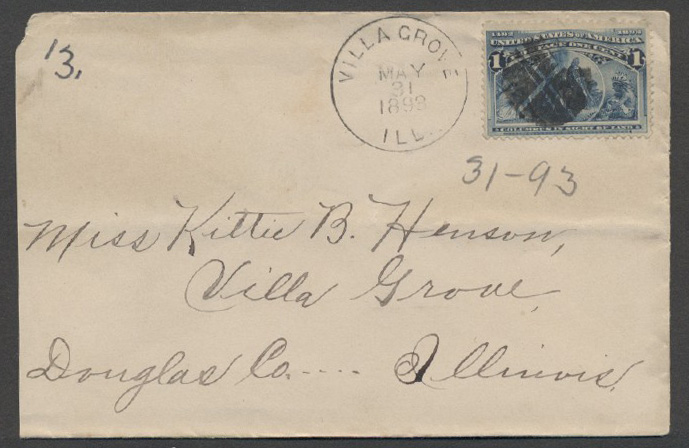 13.
VILLA GROVE
MAY
31
1893
ILL.
1492 1892
UNITED STATES OF AMERICA
1 POSTAGE ONE CENT 1
COLUMBUS IN SIGHT OF LAND
31-93
Miss Kittie B. Henson,
Villa Grove,
Douglas Co..... Illinois.